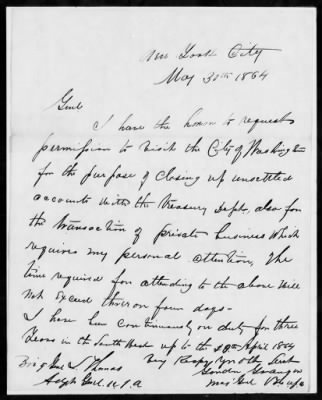 New York City
May 30th 1864
Genl
I have the honor to request
permission to visit the City of Washington
for the purpose of closing up unsettled
accounts with the Treasury Dept, also for
the transaction of private business which
requires my personal attention, The
time required for attending to the above will
not exceed three or four days-
I have been continuously on duty for three
years in the South West up to the April 1864
Brig Genl L. Thomas Very Respy yr obt Servt
Adjt Genl U.S.A Gordon Granger
Maj Genl Vols